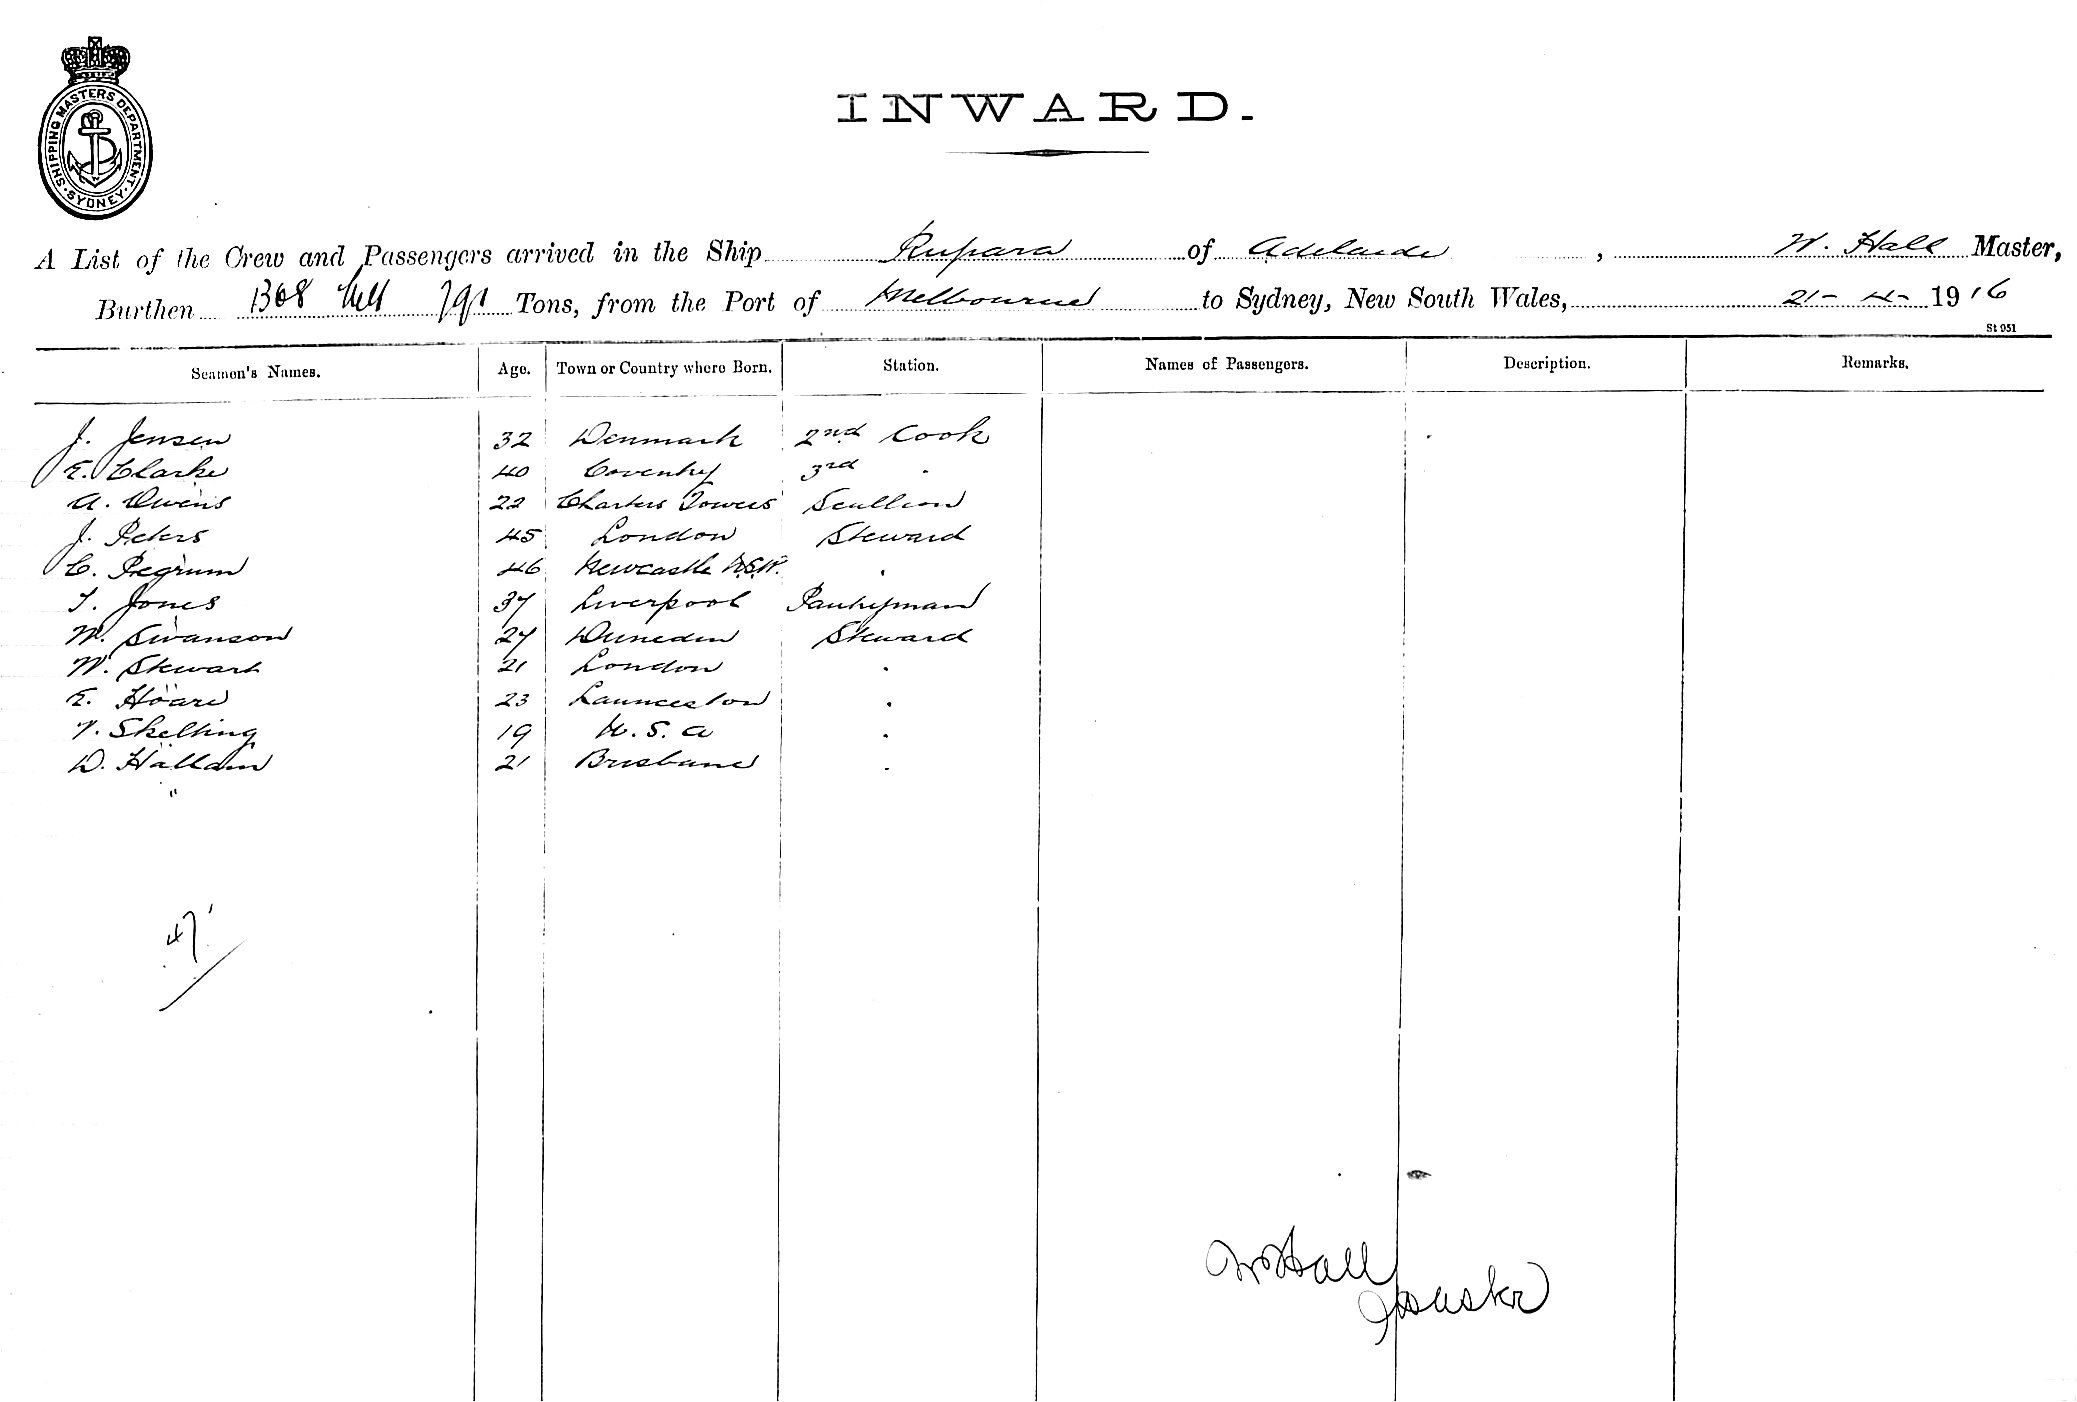 SHIPPING MASTERS DEPARTMENT. SYDNEY
INWARD.
A List of the Crew and Passengers arrived in the Ship Rupara of Adelaide, W. Hall Master,
Burthen Tons, from the Port of Melbourne to Sydney, New South Wales, 21-4-1916
St 951
Seamen's Names. Age. Town or Country where Born. Station. Names of Passengers. Description. Remarks.
J. Jensen 32 Denmark 2nd Cook
E. Clarke 40 Coventry 3rd "
A. Owens 22 Charters Towers Scullion
J. Peters 45 London Steward
C. Pegrum 46 Newcastle N.S.W. "
T. Jones 37 Liverpool Pantryman
W. Swanson 27 Dunedin Steward
W. Stewart 21 London "
E. Hoare 23 Launceston "
Skelting 19 U.S.A "
D. Hallam 21 Brisbane "
47
W Hall
Master